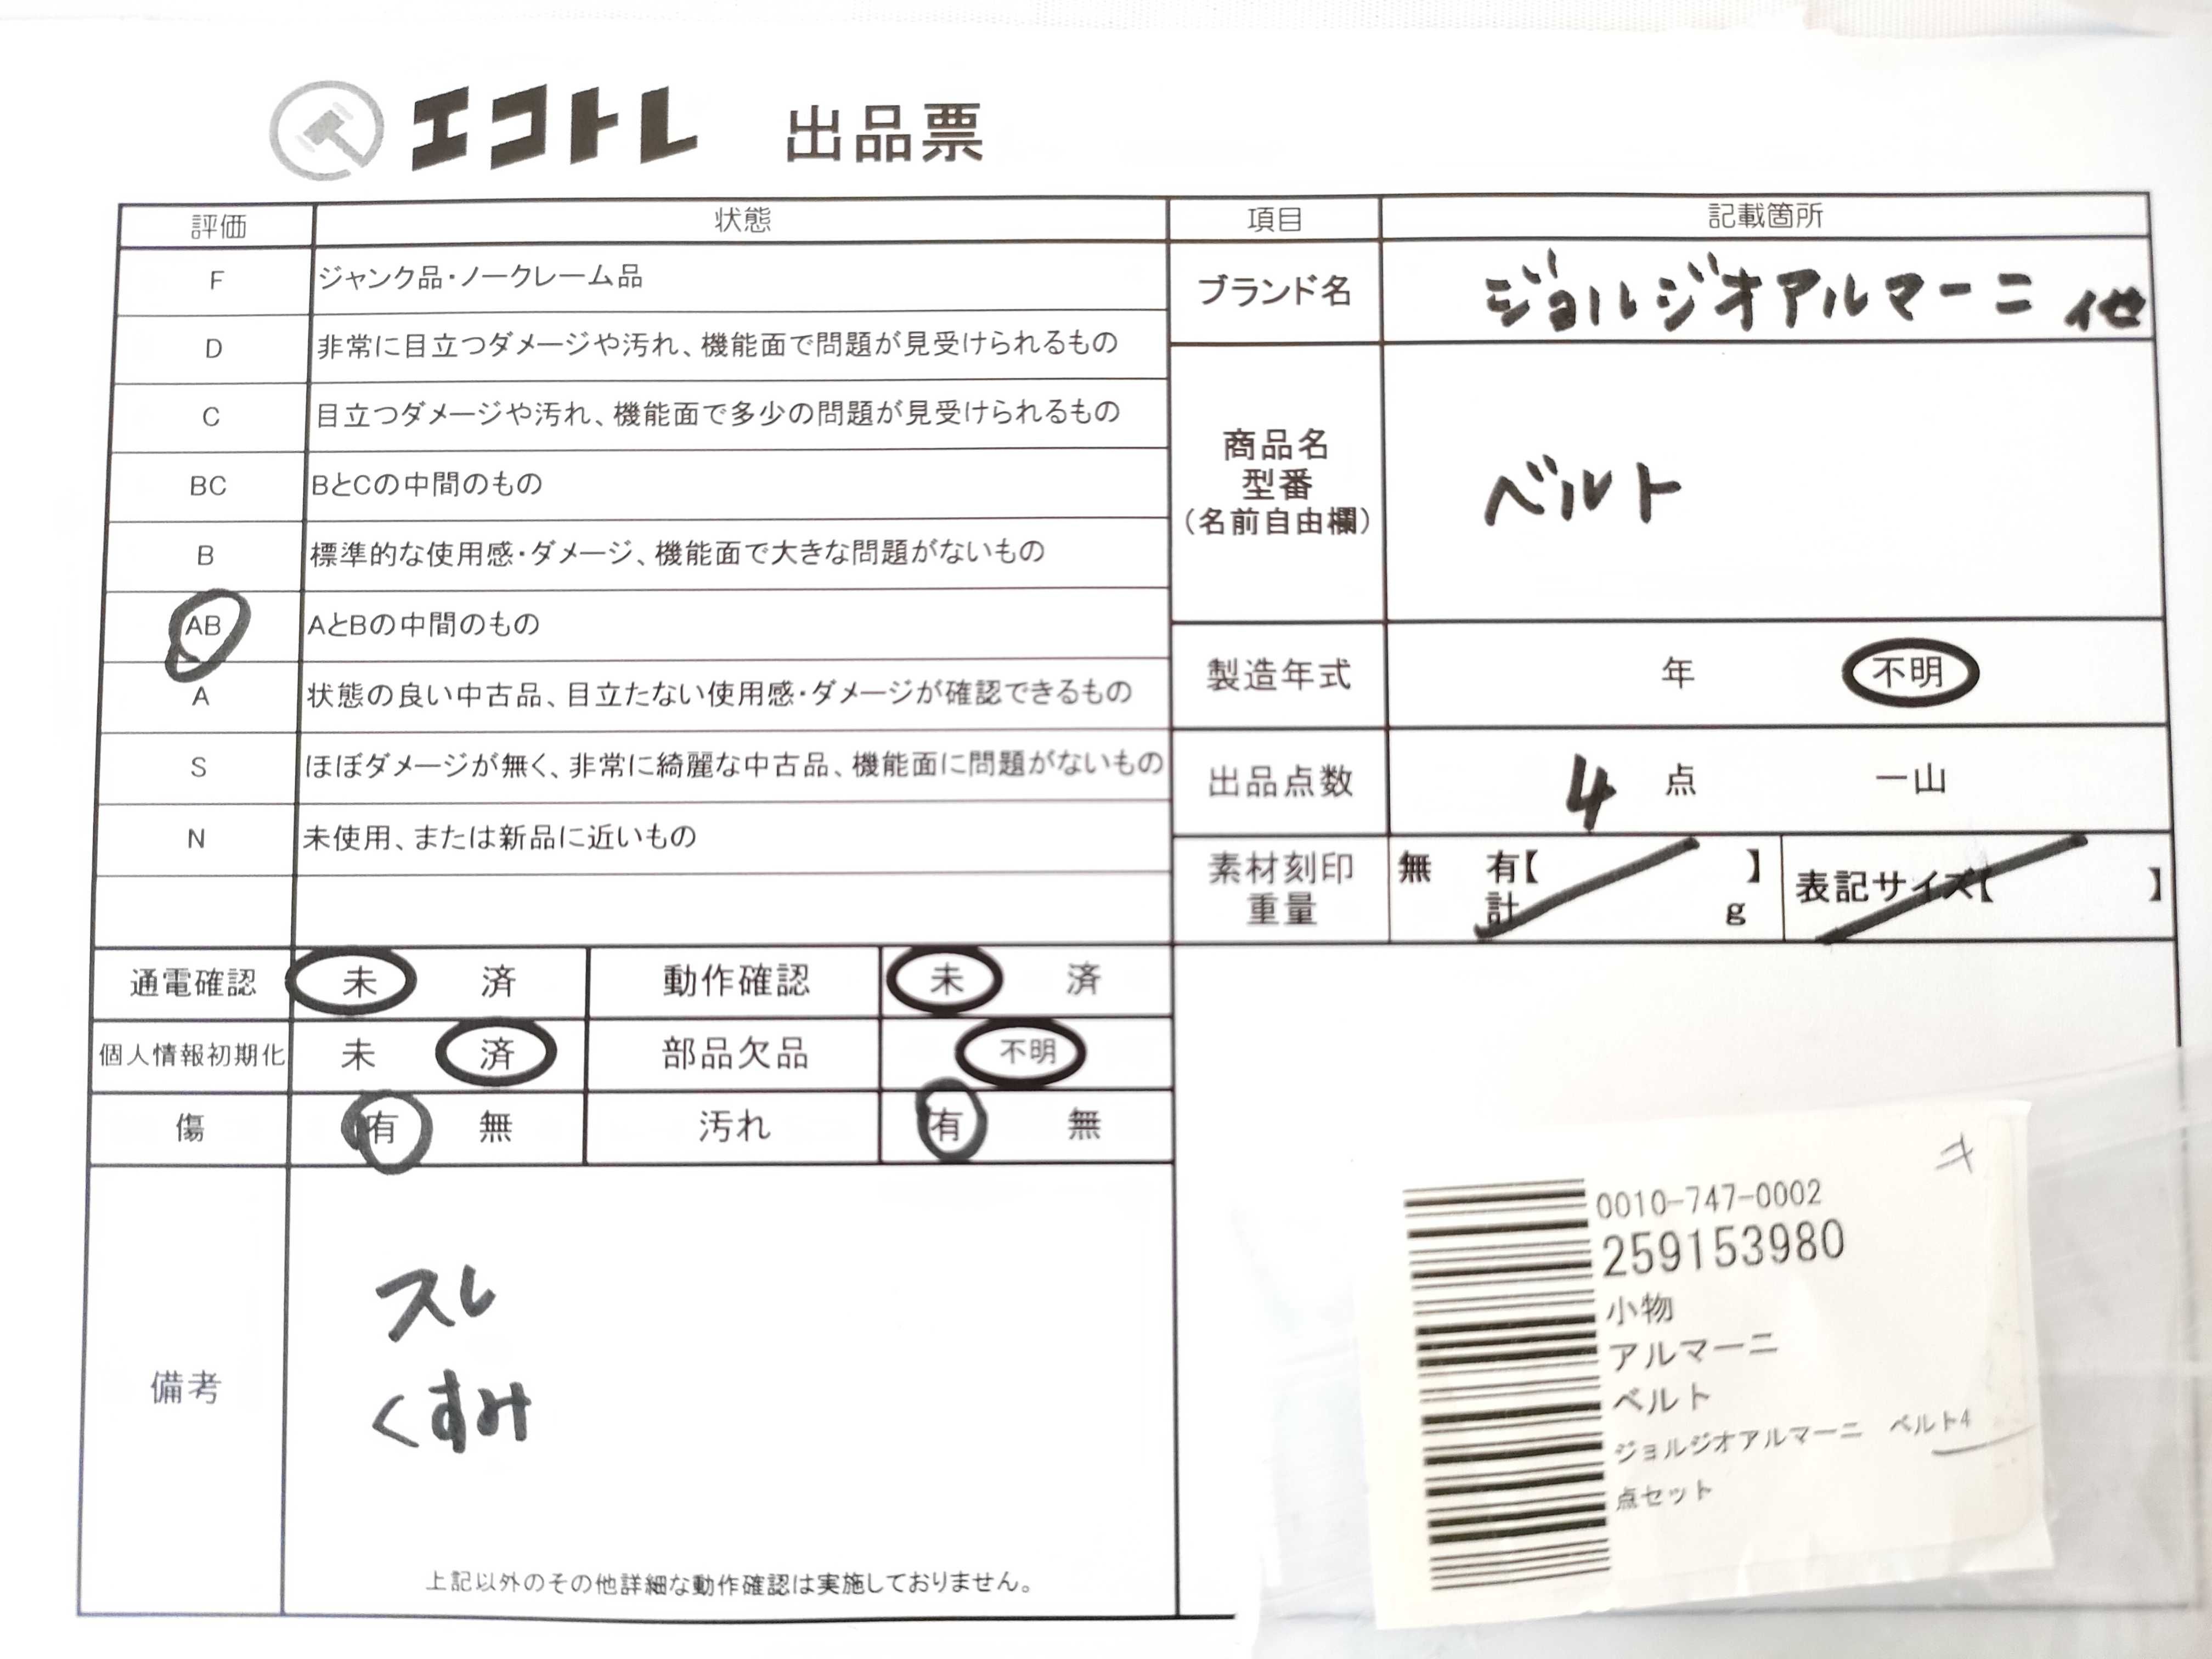 エコトレ 出品票
評価 状態 項目 記載箇所
F ジャンク品・ノークレーム品
D 非常に目立つダメージや汚れ、機能面で問題が見受けられるもの
C 目立つダメージや汚れ、機能面で多少の問題が見受けられるもの
BC BとCの中間のもの
B 標準的な使用感・ダメージ、機能面で大きな問題がないもの
AB AとBの中間のもの
A 状態の良い中古品、目立たない使用感・ダメージが確認できるもの
S ほぼダメージが無く、非常に綺麗な中古品、機能面に問題がないもの
N 未使用、または新品に近いもの
ブランド名 ジョルジオアルマーニ 他
商品名
型番
(名前自由欄)
ベルト
製造年式 年 不明
出品点数 4 点 一山
素材刻印 無 有【 】
重量 計 g
表記サイズ【 】
通電確認 未 済 動作確認 未 済
個人情報初期化 未 済 部品欠品 不明
傷 有 無 汚れ 有 無
備考
スレ
くすみ
上記以外のその他詳細な動作確認は実施しておりません。
0010-747-0002
259153980
小物
アルマーニ
ベルト
ジョルジオアルマーニ ベルト4
点セット